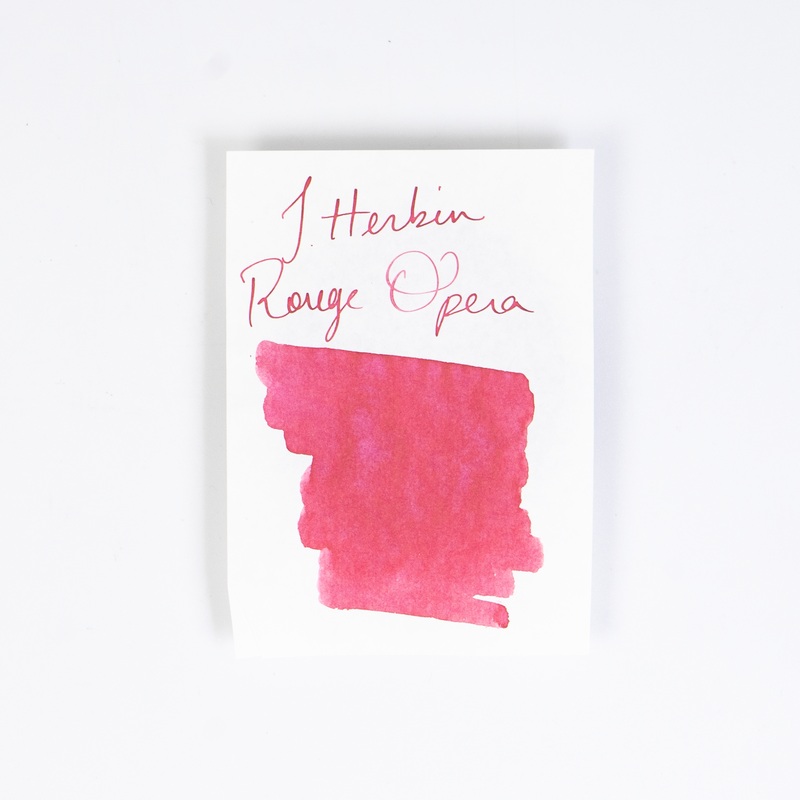 J Herbin
Rouge Opera